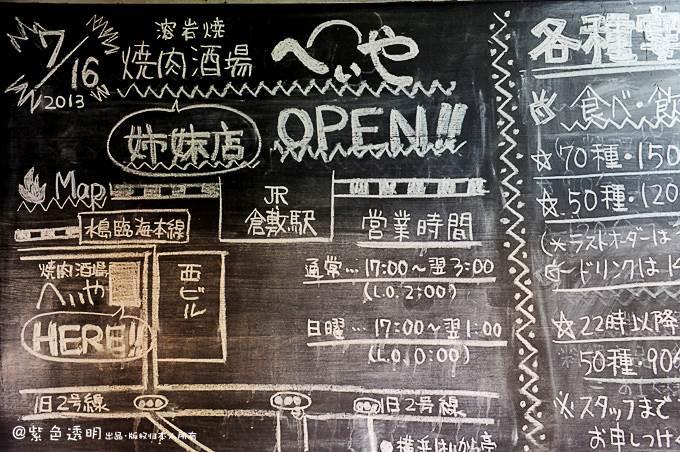 7/16
2013
溶岩焼
焼肉酒場
へいや
姉妹店
OPEN!!
Map
JR
倉敷駅
水島臨海本線
焼肉酒場
へいや
HERE!!
西ビル
旧2号線
旧2号線
営業時間
通常…17:00〜翌3:00
(L.O.2:00)
日曜…17:00〜翌1:00
(L.O.0:00)
●横浜はいから亭
各種宴
食べ・飲
☆70種・150
☆50種・120
(※ラストオーダーは
ドリンクは1
☆22時以降
50種・90
※スタッフまで
お申しつけ
@紫色透明出品·版权归本人所有